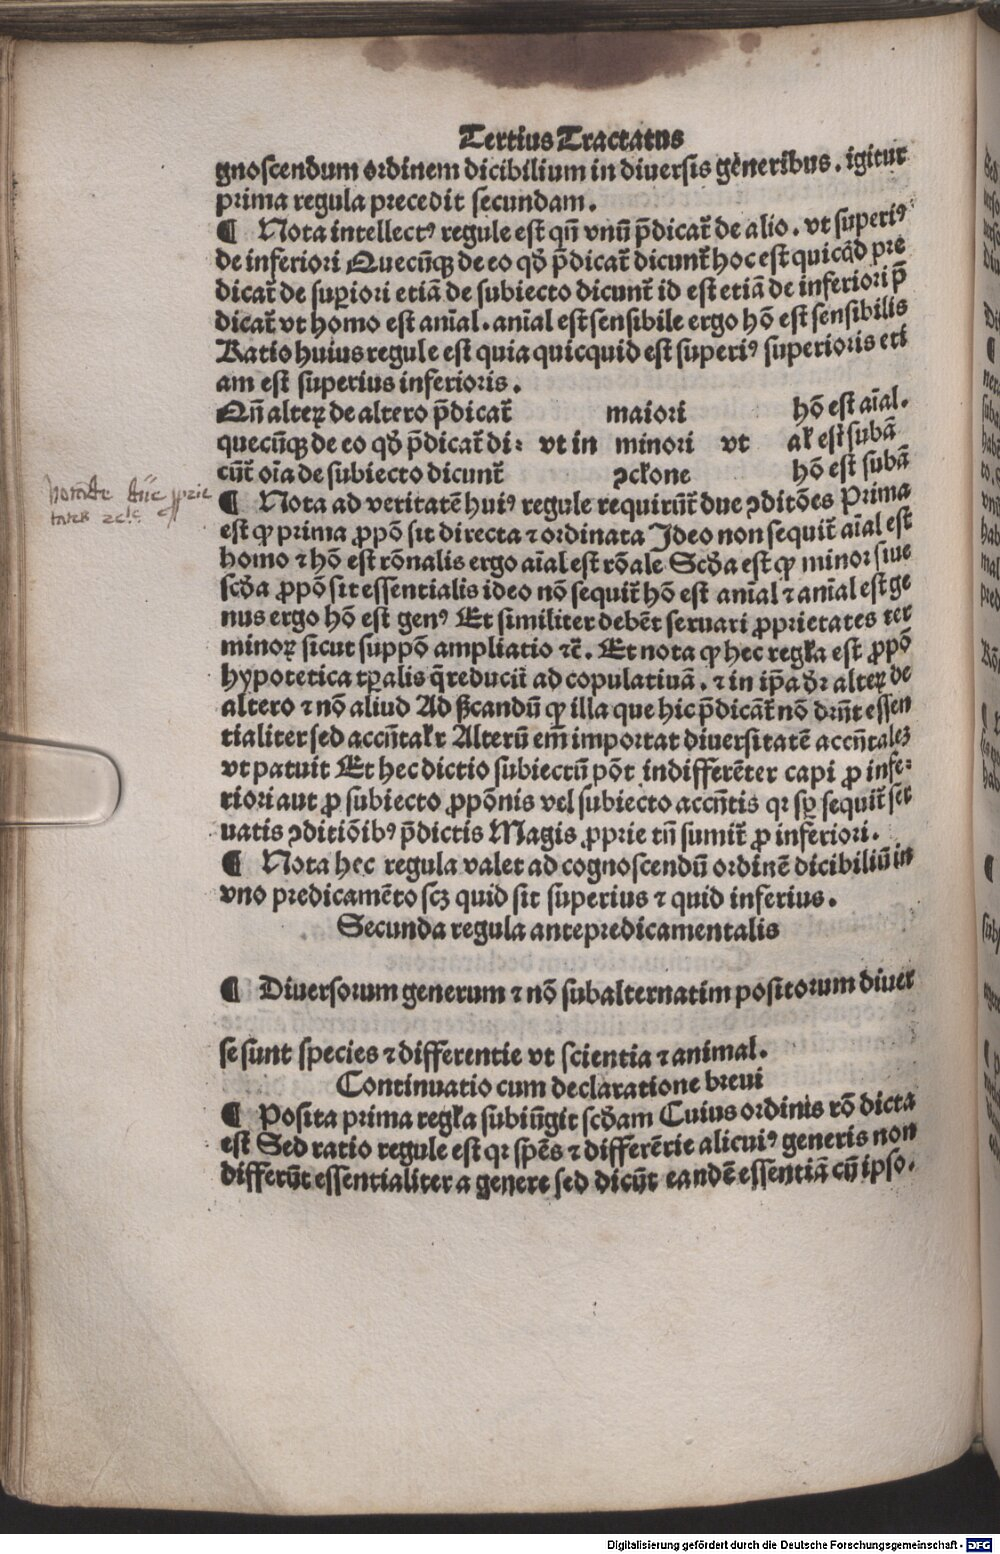 Tertius Tractatus
gnoscendum ordinem dicibilium in diuersis generibus. igitur
prima regula precedit secundam.
¶ Nota intellectꝰ regule est qñ vnũ p̃dicat᷑ de alio. vt superiꝰ
de inferiori Quecũqꝫ de eo qď p̃dicat᷑ dicunt᷑ hoc est quicq̃d pre
dicat᷑ de suꝑiori etiã de subiecto dicunt᷑ id est etiã de inferiori p̃
dicat᷑ vt homo est anĩal. anĩal est sensibile ergo hõ est sensibilis
Ratio huius regule est quia quicquid est superiꝰ superioris eti
am est superius inferioris.
Qñ alteꝝ de altero p̃dicat᷑ maiori hõ est aĩal.
quecũqꝫ de eo qď p̃dicat᷑ di: vt in minori vt aĺ est subã
cũt᷑ oĩa de subiecto dicunt᷑ ꝯcĺone hõ est subã
¶ Nota ad veritatẽ huiꝰ regule requirũt᷑ due ꝯditões Prima
est ꝙ prima ꝓpõ sit directa ⁊ ordinata Ideo non sequit᷑ aĩal est
homo ⁊ hõ est rõnalis ergo aĩal est rõale Scďa est ꝙ minor siue
scďa ꝓpõ sit essentialis ideo nõ sequit᷑ hõ est anĩal ⁊ anĩal est ge
nus ergo hõ est genꝰ Et similiter debẽt seruari ꝓprietates ter
minoꝝ sicut suppõ ampliatio ⁊c̃. Et nota ꝙ hec regĺa est ꝓpõ
hypotetica tꝑalis q̃ reducit᷑ ad copulatiuã. ⁊ in ip̃a dr᷑ alteꝝ de
altero ⁊ nõ aliud Ad ẞcandũ ꝙ illa que hic p̃dicãt᷑ nõ dñt᷑ essen
tialiter sed accñtaĺr Alterũ em̃ importat diuersitatẽ accñtaleꝫ
vt patuit Et hec dictio subiectũ põt indifferẽter capi ꝓ infe:
riori aut ꝓ subiecto ꝓpõnis vel subiecto accñtis qr sꝑ sequit᷑ ser
uatis ꝯditiõibꝰ p̃dictis Magis ꝓprie tñ sumit᷑ ꝓ inferiori.
¶ Nota hec regula valet ad cognoscendũ ordinẽ dicibiliũ in
vno predicamẽto scꝫ quid sit superius ⁊ quid inferius.
Secunda regula antepredicamentalis
¶ Diuersorum generum ⁊ nõ subalternatim positorum diuer
se sunt species ⁊ differentie vt scientia ⁊ animal.
Continuatio cum declaratione breui
¶ Posita prima regĺa subiũgit scďam Cuius ordinis rõ dicta
est Sed ratio regule est qr sp̃es ⁊ differẽtie alicuiꝰ generis non
differũt essentialiter a genere sed dicũt eandẽ essentiã cũ ipso.
Digitalisierung gefördert durch die Deutsche Forschungsgemeinschaft - DFG